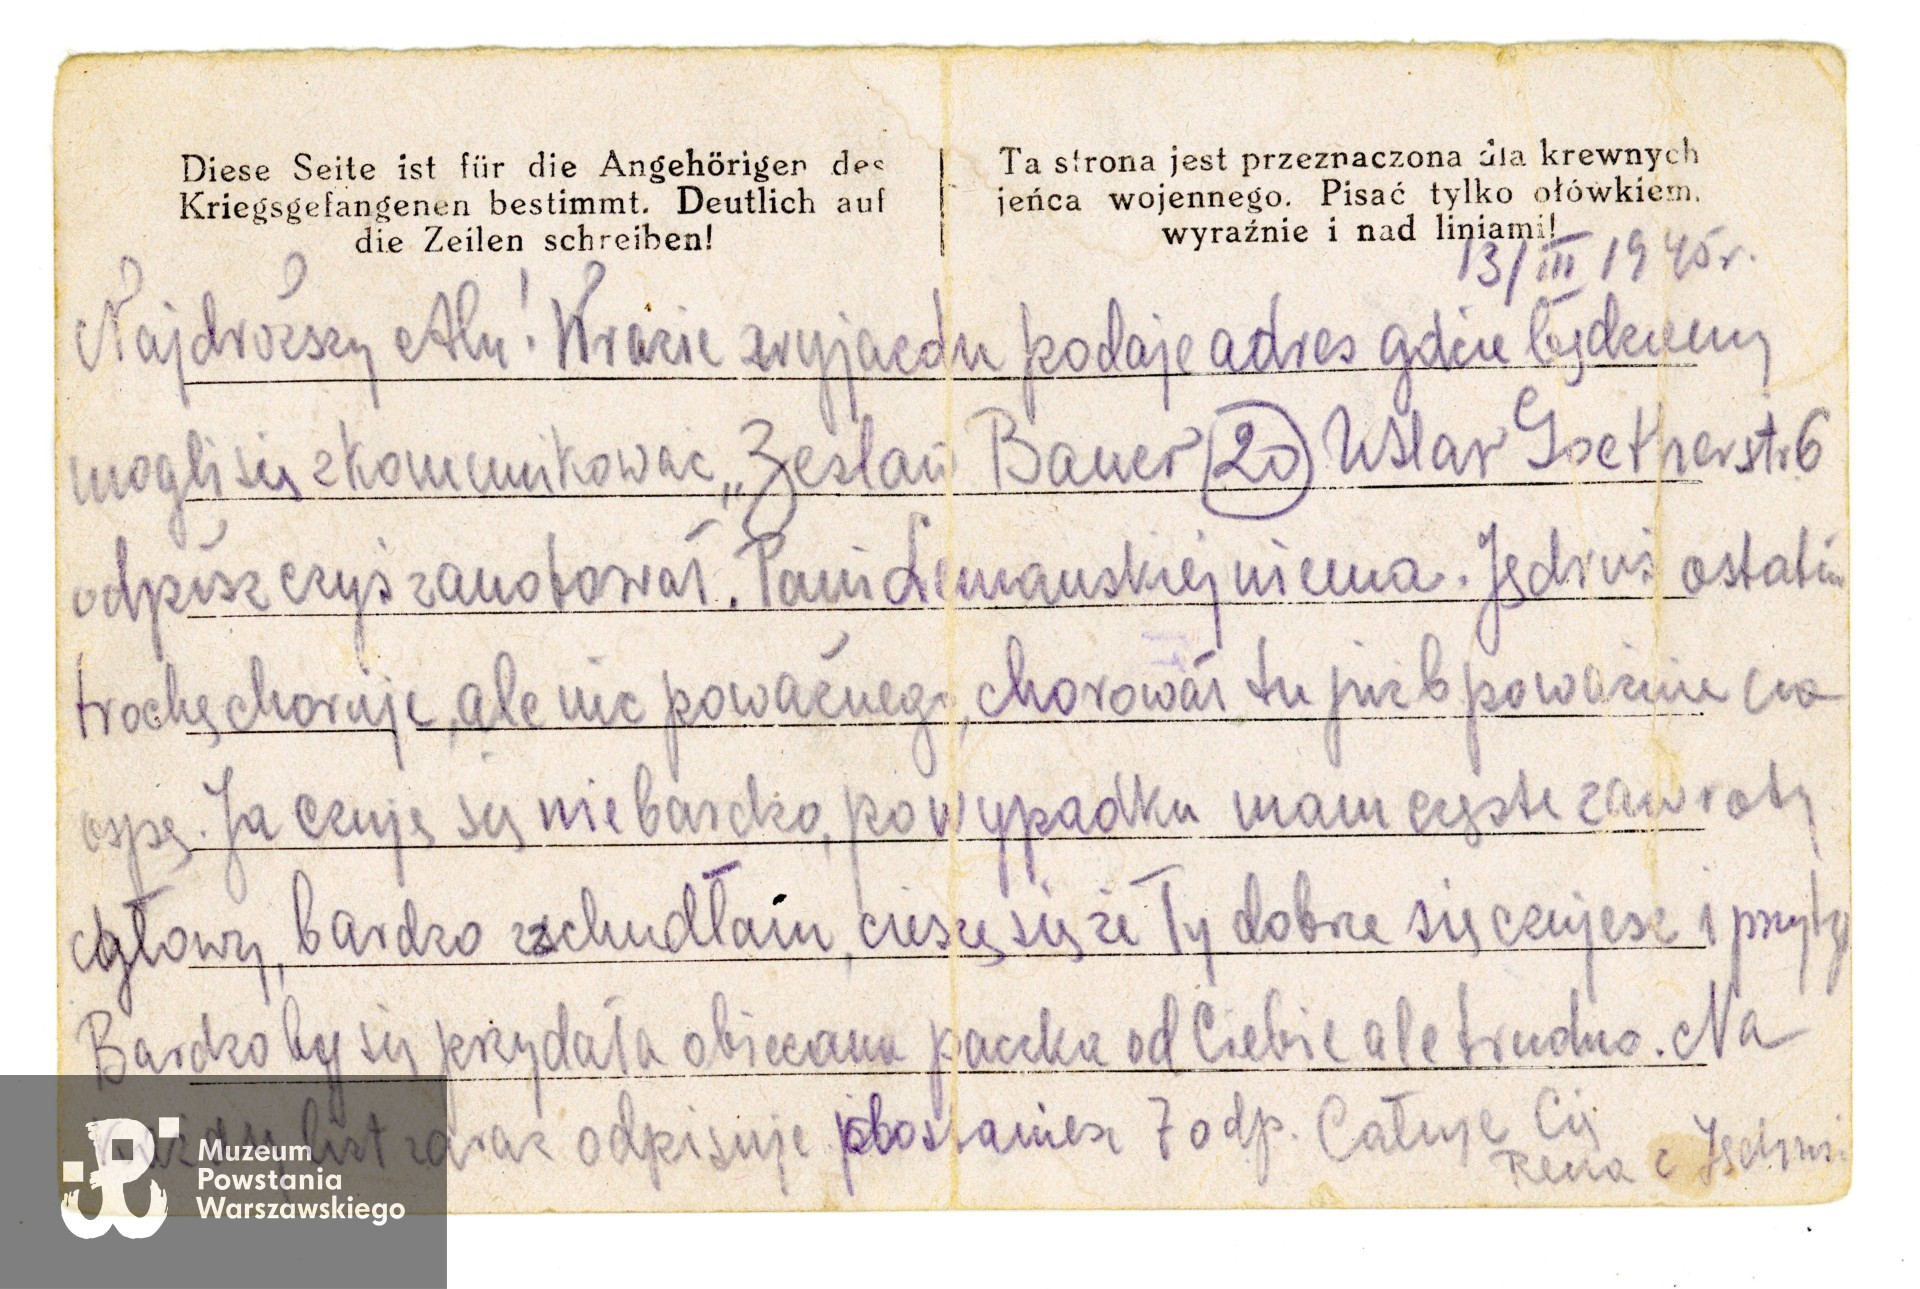 Diese Seite ist für die Angehörigen des
Kriegsgefangenen bestimmt. Deutlich auf
die Zeilen schreiben!
Ta strona jest przeznaczona dla krewnych
jeńca wojennego. Pisać tylko ołówkiem,
wyraźnie i nad liniami!
13/III 1945r.
Najdroższy Alu! W razie wyjazdu podaje adres gdzie będziemy
mogli się skomunikować „Zesław Bauer 20 Uslar Goetherstr. 6
odpisz czyś zanotował. Pani Lemanskiej niema. Jędruś ostatnio
trochę choruje, ale nic poważnego, chorował tu już b poważnie na
ospę. Ja czuję się niebardzo, po wypadku mam częste zawroty
głowy, bardzo zchudłam, cieszę się że Ty dobrze się czujesz i
Bardzo by się przydała obiecana paczka od Ciebie ale trudno. Na
każdy list zaraz odpisuje dostaniesz 7 odp. Całuje Cię
Rena z Jędrusi
Muzeum
Powstania
Warszawskiego